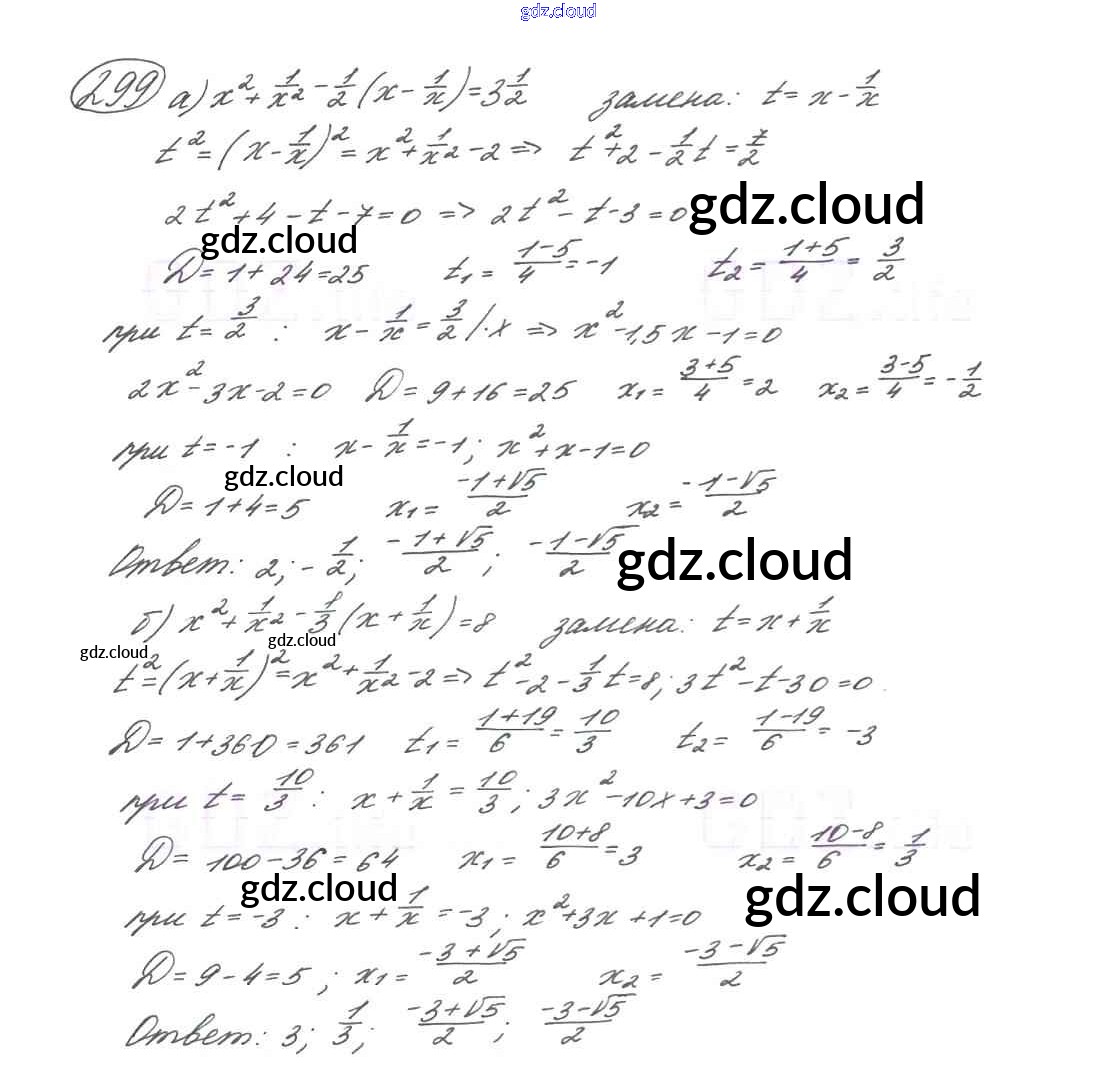 gdz.cloud
299 а) x² + 1/x² - 1/2 (x - 1/x) = 3 1/2 замена: t = x - 1/x
t² = (x - 1/x)² = x² + 1/x² - 2 => t² + 2 - 1/2 t = 7/2
2t² + 4 - t - 7 = 0 => 2t² - t - 3 = 0 gdz.cloud
gdz.cloud
D = 1 + 24 = 25 t₁ = (1-5)/4 = -1 t₂ = (1+5)/4 = 3/2
при t = 3/2 : x - 1/x = 3/2 /·x => x² - 1,5x - 1 = 0
2x² - 3x - 2 = 0 D = 9 + 16 = 25 x₁ = (3+5)/4 = 2 x₂ = (3-5)/4 = -1/2
при t = -1 : x - 1/x = -1; x² + x - 1 = 0
gdz.cloud
D = 1 + 4 = 5 x₁ = (-1+√5)/2 x₂ = (-1-√5)/2
Ответ: 2; -1/2; (-1+√5)/2; (-1-√5)/2 gdz.cloud
б) x² + 1/x² - 1/3 (x + 1/x) = 8 замена: t = x + 1/x
gdz.cloud gdz.cloud
t² = (x + 1/x)² = x² + 1/x² - 2 => t² - 2 - 1/3 t = 8; 3t² - t - 30 = 0.
D = 1 + 360 = 361 t₁ = (1+19)/6 = 10/3 t₂ = (1-19)/6 = -3
при t = 10/3 : x + 1/x = 10/3; 3x² - 10x + 3 = 0
D = 100 - 36 = 64 x₁ = (10+8)/6 = 3 x₂ = (10-8)/6 = 1/3
gdz.cloud gdz.cloud
при t = -3 : x + 1/x = -3; x² + 3x + 1 = 0
D = 9 - 4 = 5; x₁ = (-3+√5)/2 x₂ = (-3-√5)/2
Ответ: 3; 1/3; (-3+√5)/2; (-3-√5)/2